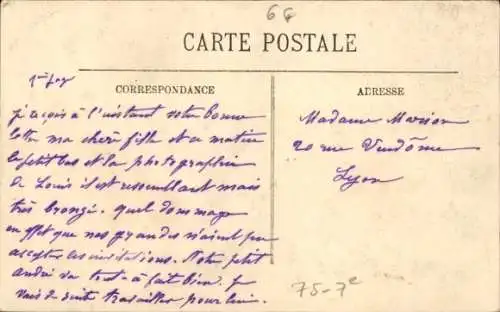 66
CARTE POSTALE
CORRESPONDANCE
ADRESSE
1ère page
je reçois à l'instant votre bonne
lettre ma chère fille et ce matin
le petit bas et la photographie
de Louis il est ressemblant mais
très bronzé. quel dommage
en effet que nos grandes n'aient pu
accepter les invitations. Notre petit
andré va tout-à fait bien. Je
vais de suite travailler pour lui.
Madame Marion
20 rue Vendôme
Lyon
75-7e